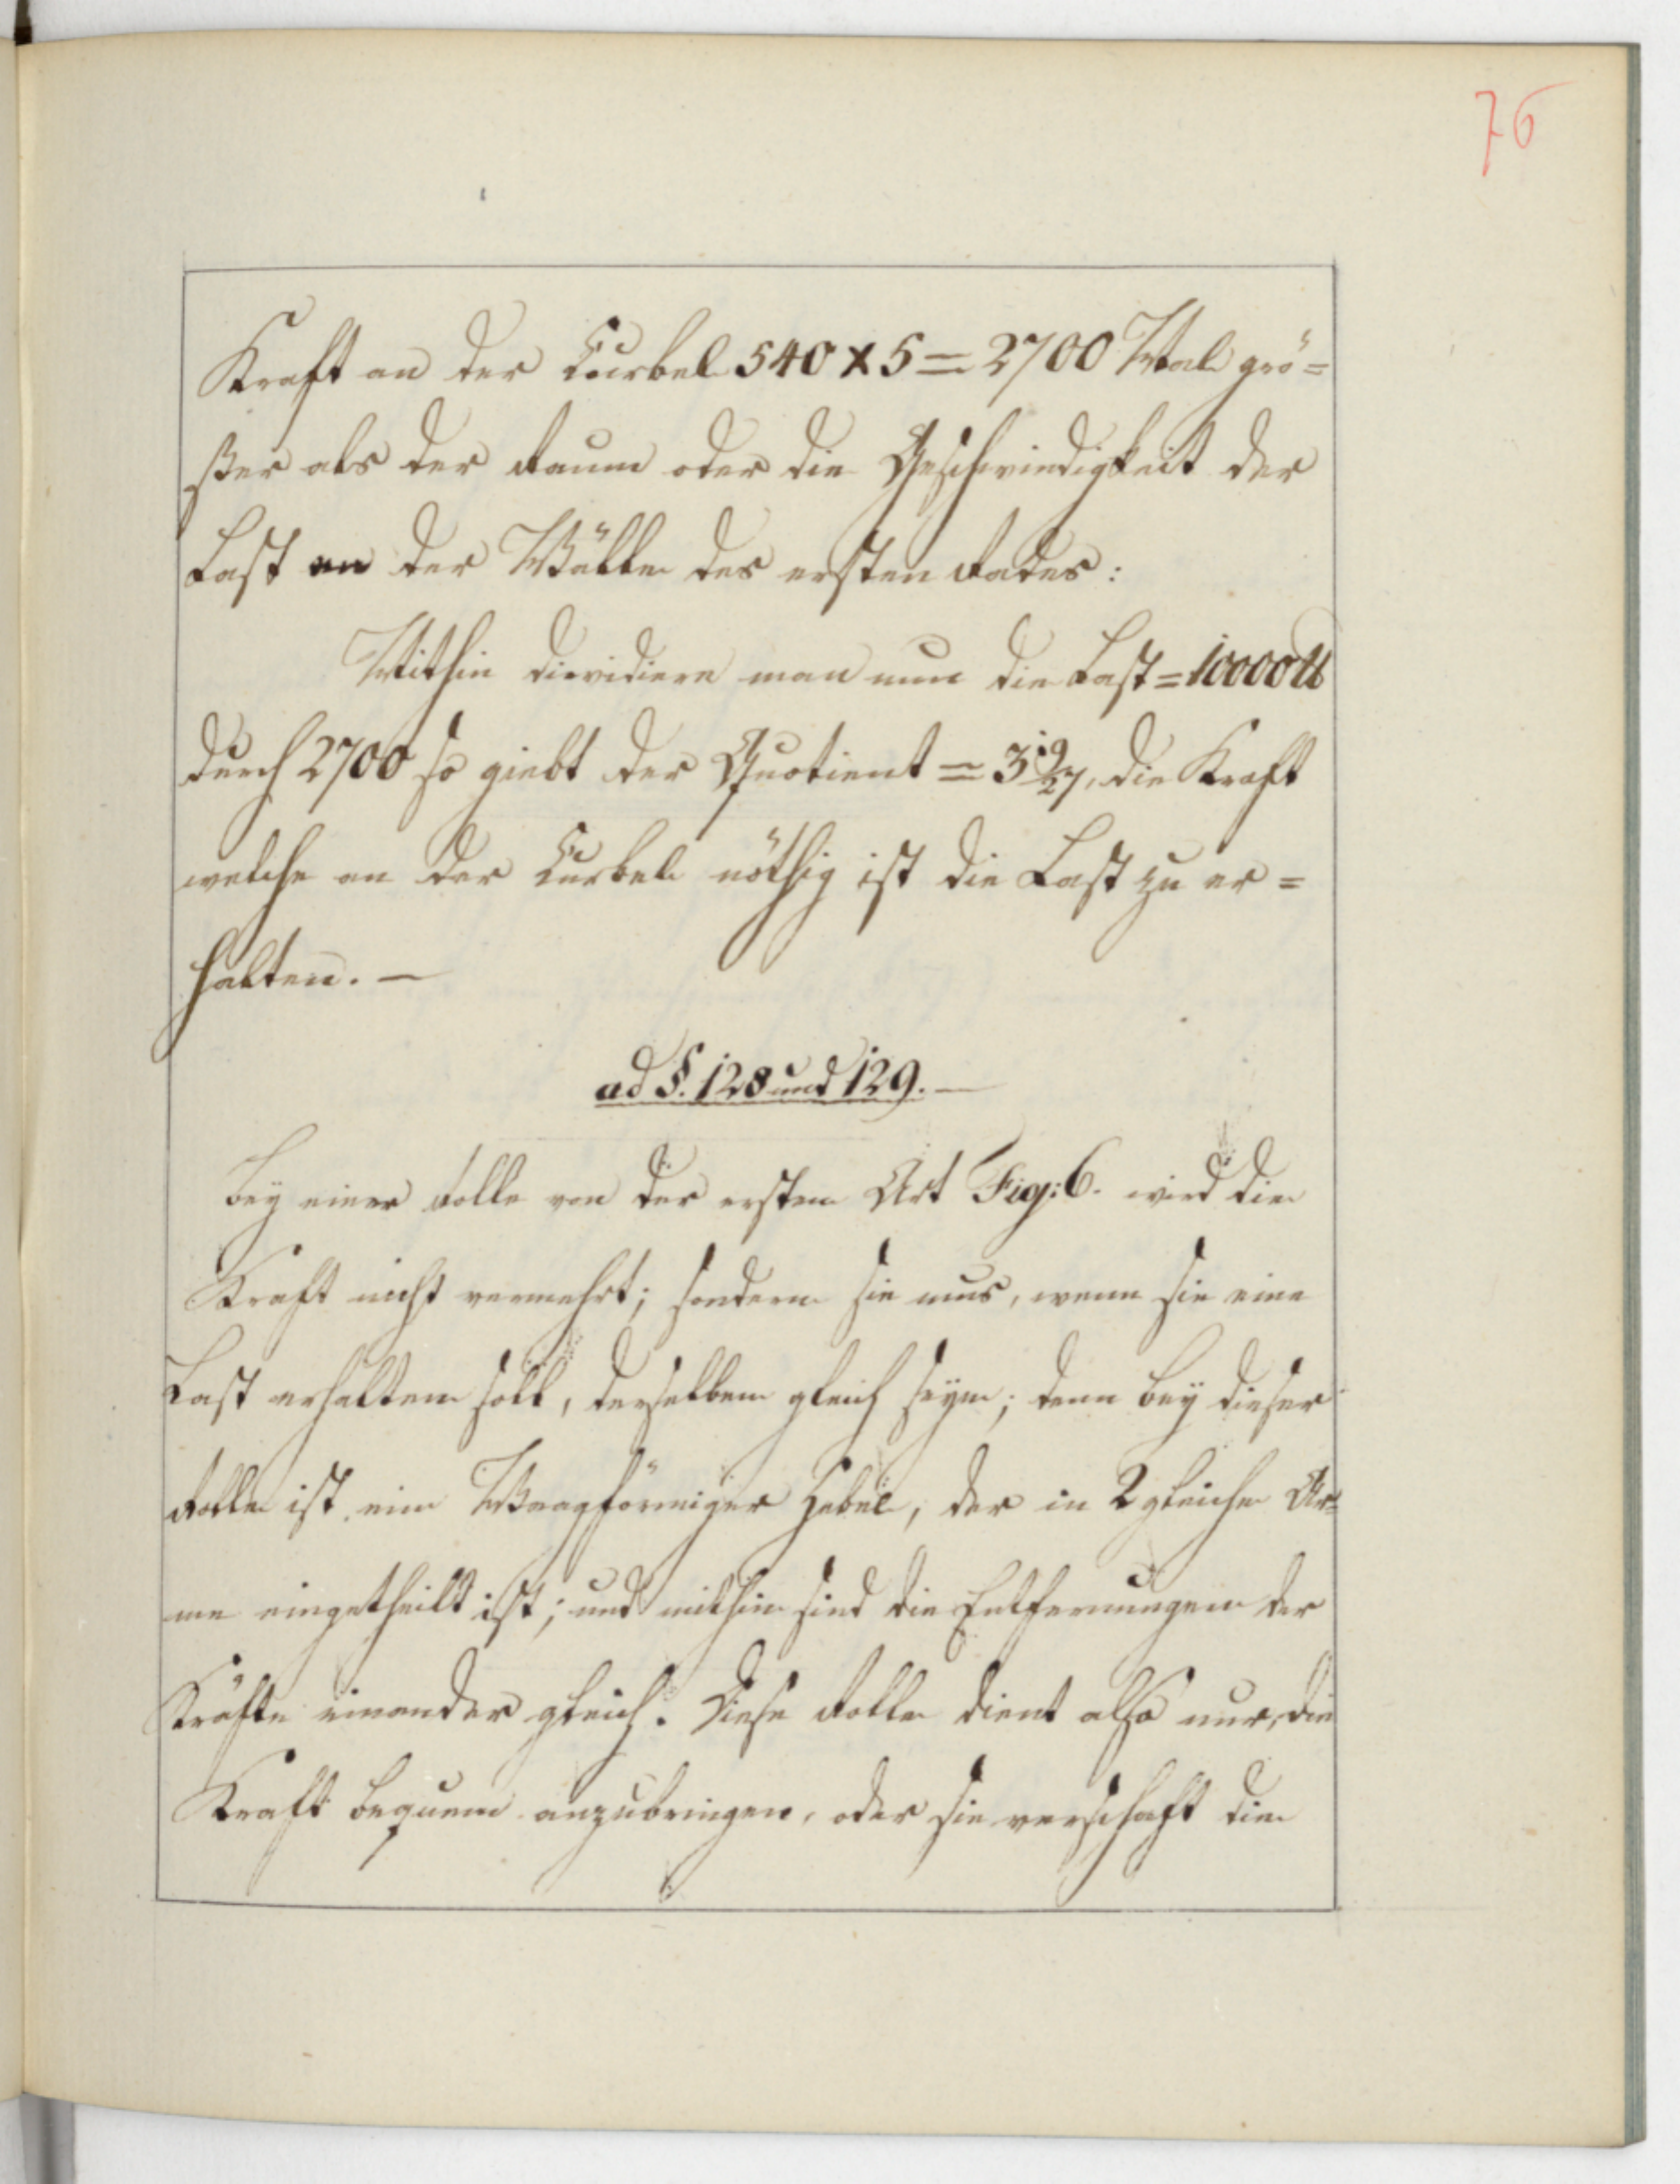 76
Kraft an der Curbel 540 x 5 = 2700 Mal grö=
ßer als der Raum oder die Geschwindigkeit der
Last an der Wälle des ersten Rades:
Mithin dievidiere man nun die Last = 10000 ℔
durch 2700 so giebt der Quotient = 3 19/27, die Kraft
welche an der Curbel nöthig ist die Last zu er=
halten. —
ad §. 128 und 129. —
Bey einer Rolle von der ersten Art Fig: 6. wird die
Kraft nicht vermehrt; sondern sie mus, wenn sie eine
Last erhalten soll, derselben gleich seyn; denn bey dieser
Rolle ist ein Waagförmiger Hebel, der in 2 gleiche Ar=
me eingetheilt ist; und mithin sind die Entfernungen der
Kräfte einander gleich. Diese Rolle dient also nur, die
Kraft bequem anzubringen, oder sie verschaft die